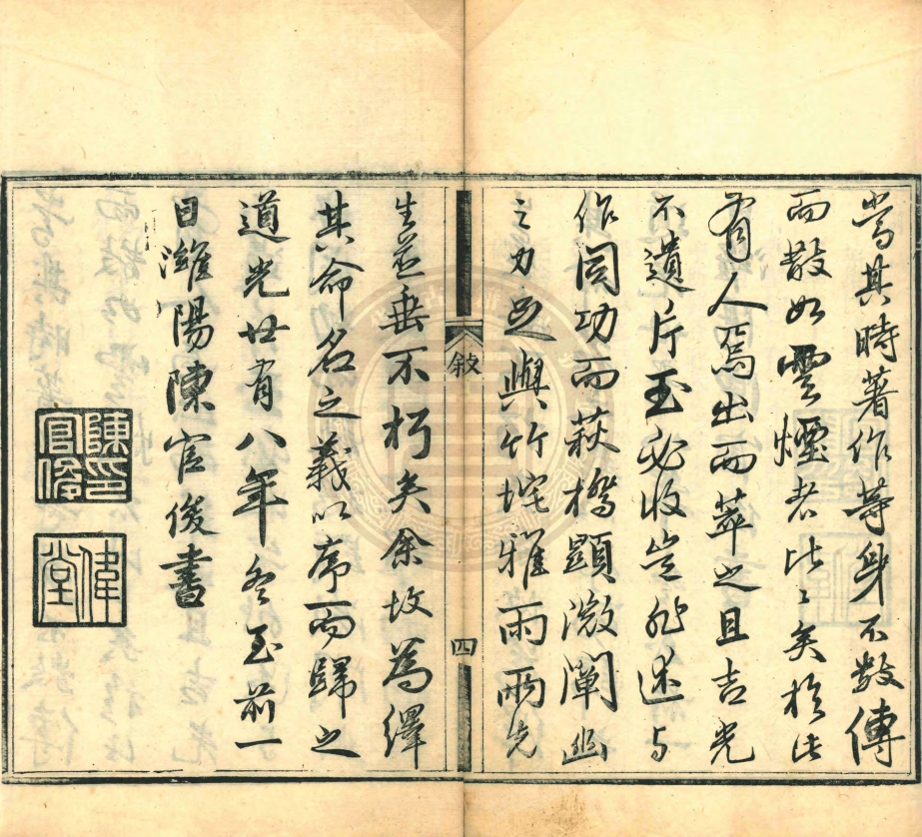 當其時著作等身不數傳
而散如雲煙者比比矣於此
有人焉出而萃之且吉光
不遺片玉必收豈非述与
作同功而萩橋顯微闡幽
之力與竹垞雅雨兩先
生並垂不朽矣余故為繹
其命名之義以序而歸之
道光廿有八年冬至前一
日濰陽陳官俊書
敘
四
陳印官俊
偉堂